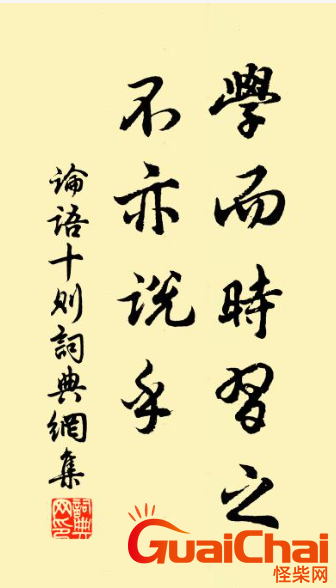 學而時習之
不亦説乎
論語十则詞典網集
詞典
网印
GuaiChai
怪柴网